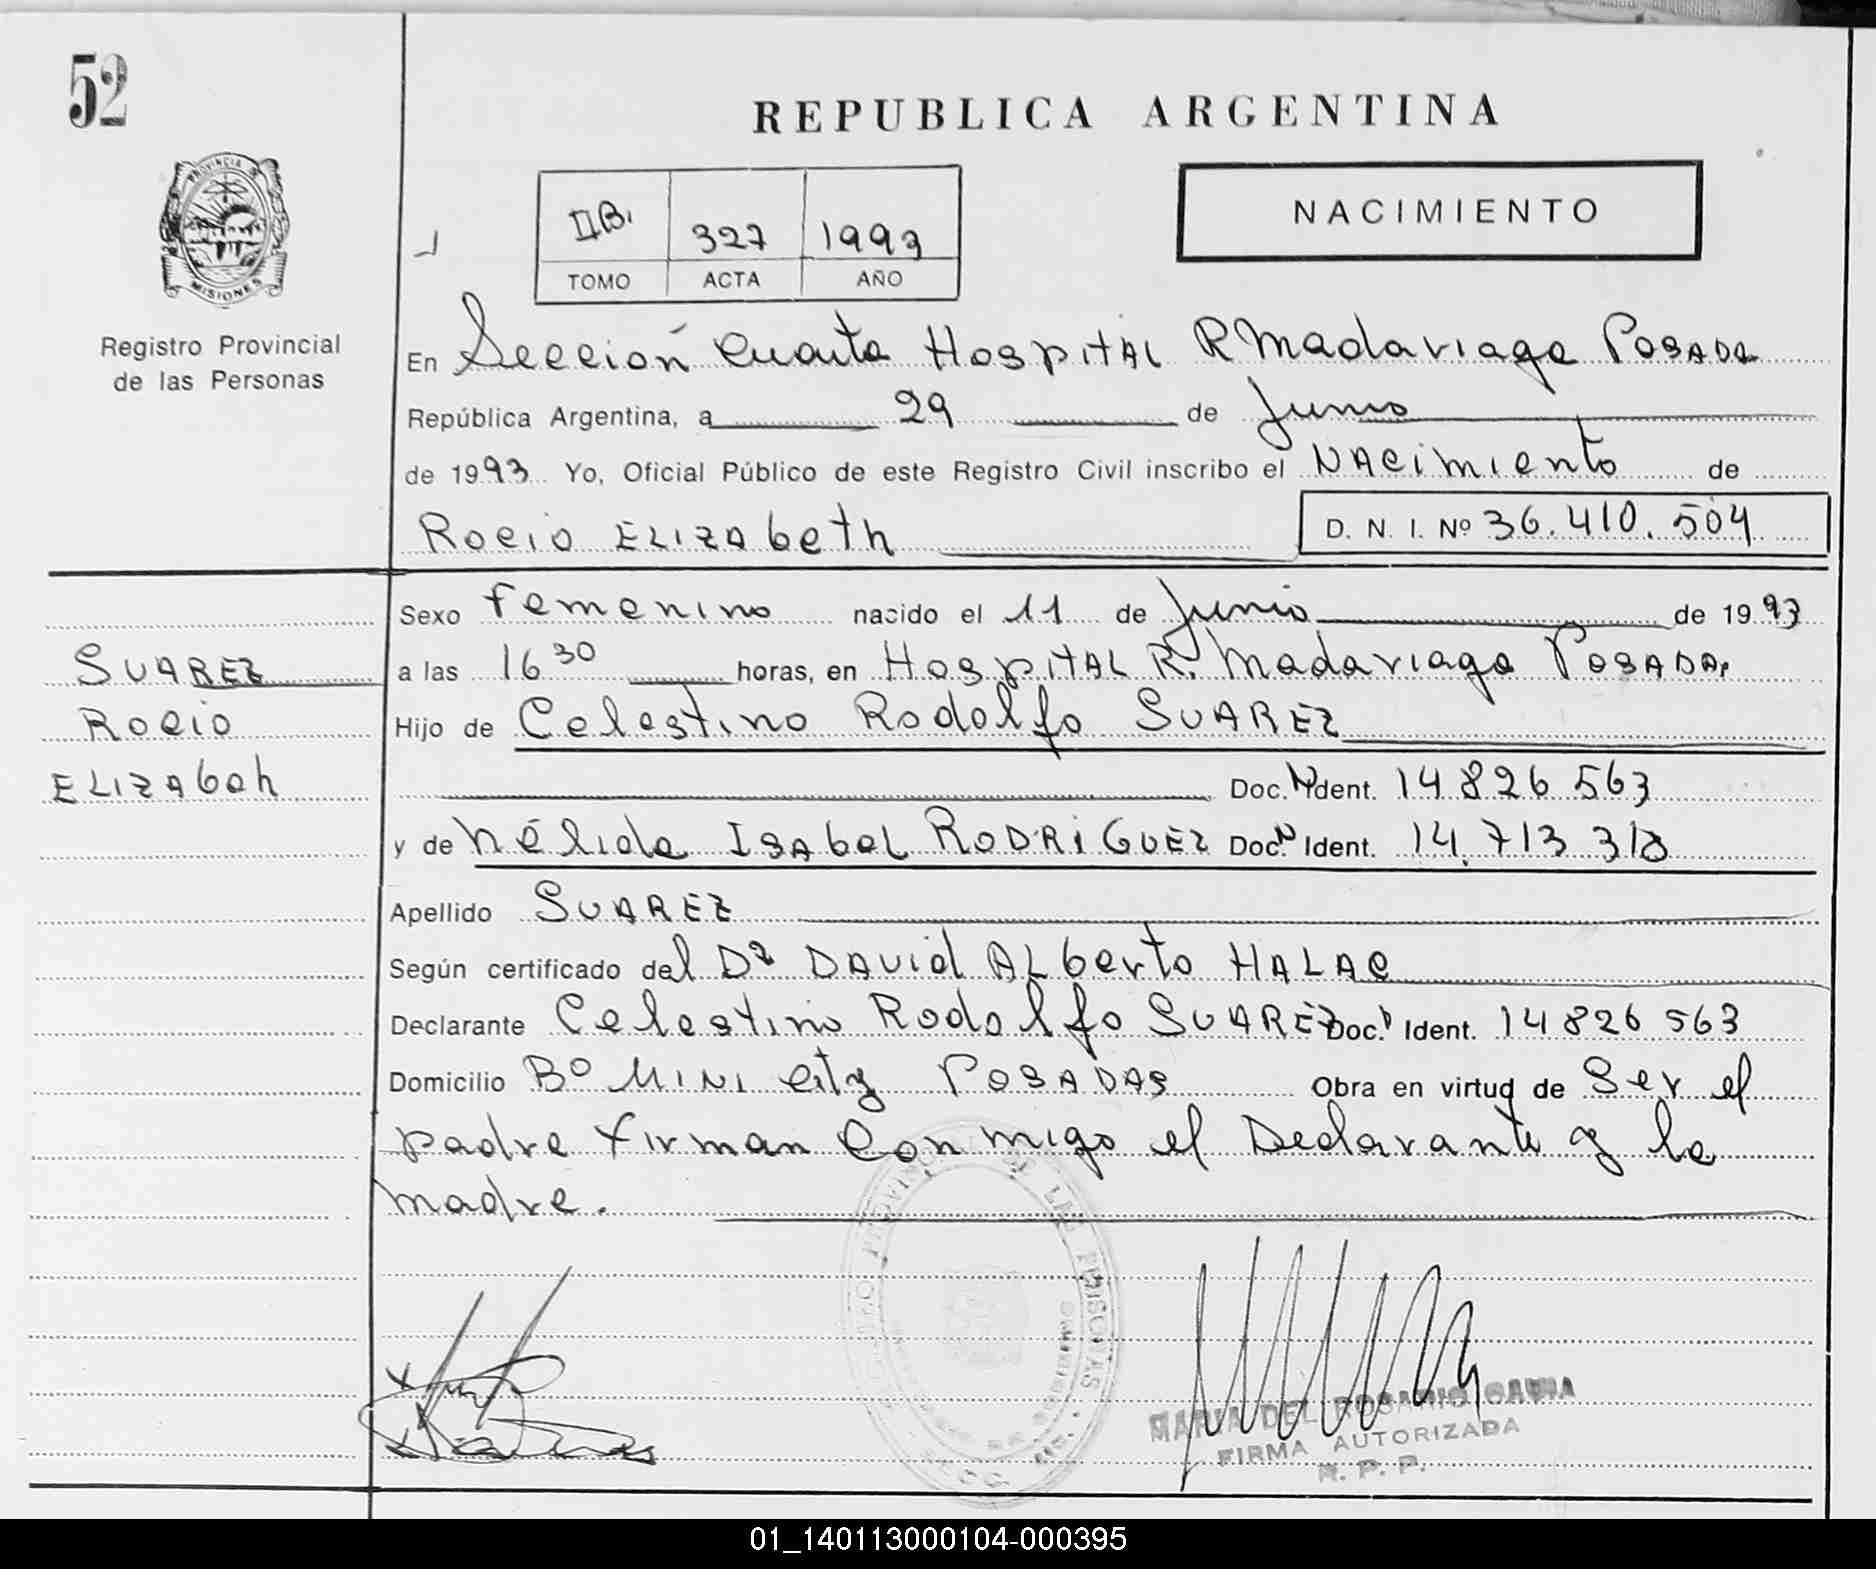 52
REPUBLICA ARGENTINA
PROVINCIA DE
MISIONES
Registro Provincial
de las Personas
II B. 327 1993
TOMO ACTA AÑO
NACIMIENTO
En Sección Cuarta Hospital R Madariaga Posada
República Argentina, a 29 de Junio
de 1993 Yo, Oficial Público de este Registro Civil inscribo el NAcimiento de
Rocio ELIZAbeth D. N. I. Nº 36.410.504
Sexo femenino nacido el 11 de Junio de 1993
SUAREZ
a las 16 30 horas, en HospITAL R. Madariaga POSADA,
Rocio
Hijo de Celestino Rodolfo SUAREZ
ELIZAbeh
Doc. N Ident. 14 826 563
y de Nélida ISAbel RODRIGUEZ Doc. N Ident. 14.713 318
Apellido SUAREZ
Según certificado del Dr DAVid ALberto HALAC
Declarante Celestino Rodolfo SUAREZ Doc. Ident. 14 826 563
Domicilio Bº MINI City POSADAS Obra en virtud de Ser el
padre firman Con migo el Declarante y la
madre.
MARIA DEL ROSARIO
FIRMA AUTORIZADA
R. P. P.
01_140113000104-000395